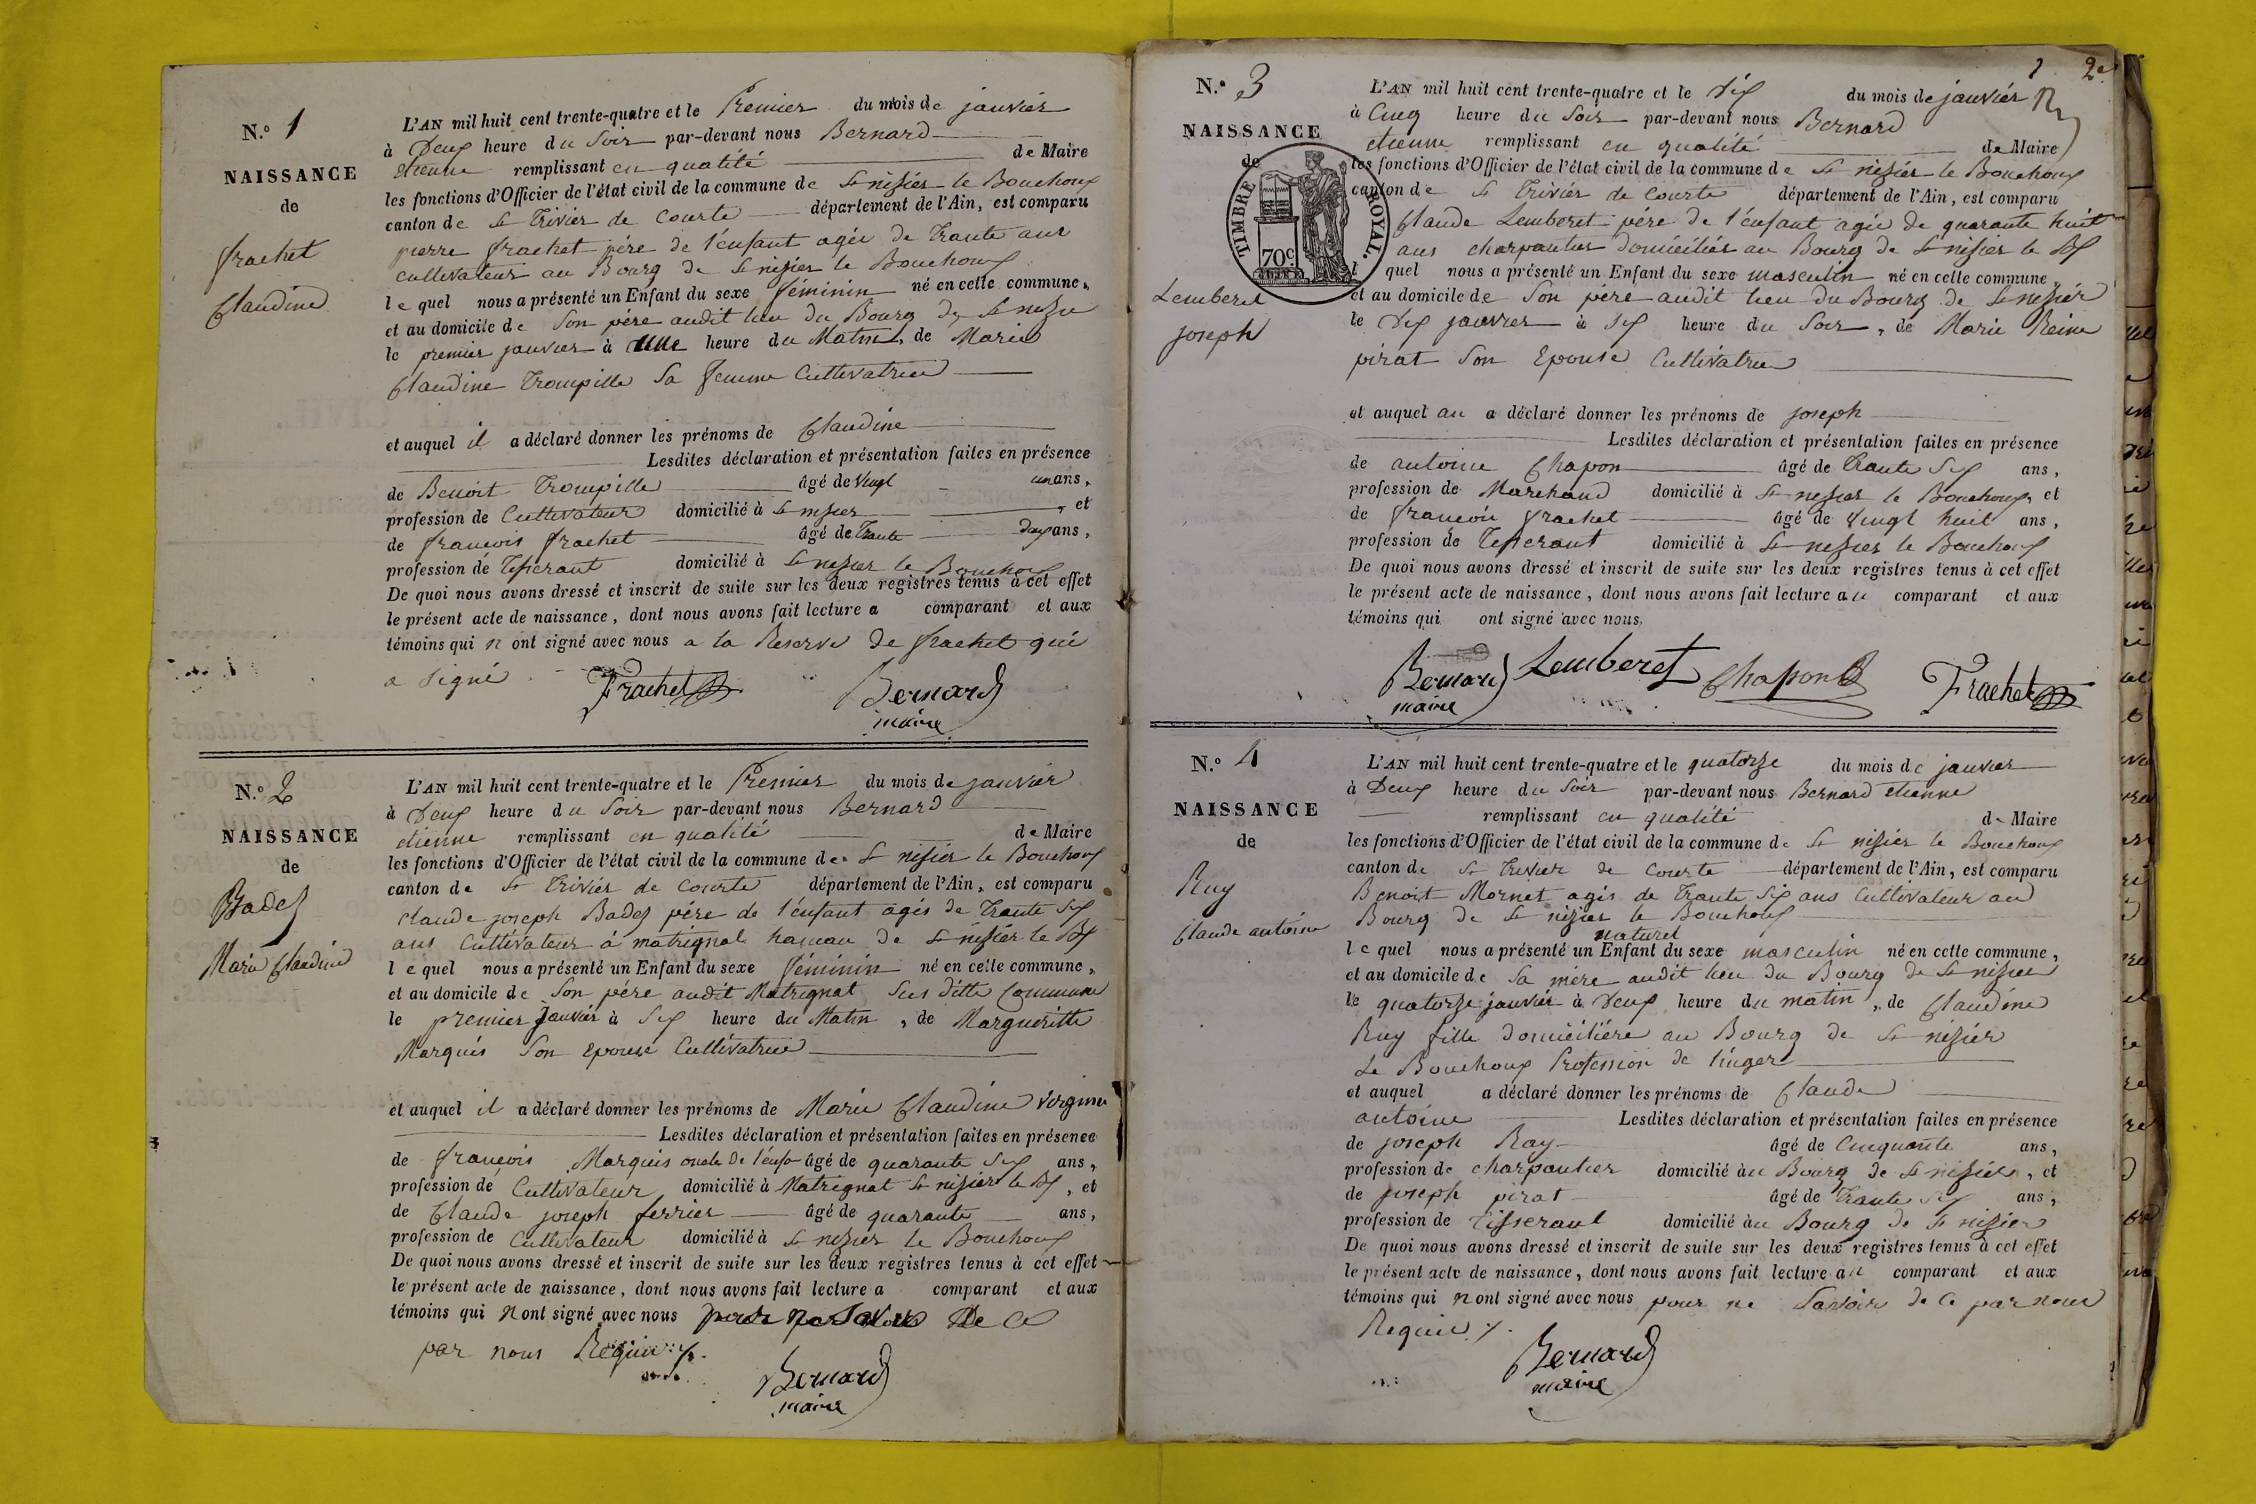 N.º 1
NAISSANCE
de
frachet
Claudine
L'AN mil huit cent trente-quatre et le Premier du mois de janviér
à Deux heure du Soir par-devant nous Bernard
etienne remplissant en qualité de Maire
les fonctions d'Officier de l'état civil de la commune de St nisiér le Bouchoux
canton de St Triviér de Courte département de l'Ain, est comparu
pierre frachet pére de l'enfant agée de Trante ans
cultivateur au Bourg de St nisiér le Bouchoux
le quel nous a présenté un Enfant du sexe féminin né en cette commune,
et au domicile de Son pére audit lieu du Bourg de St nisier
le premier janvier à une heure du Matin, de Marie
Claudine Trompille Sa femme Cultivatrice
et auquel il a déclaré donner les prénoms de Claudine
Lesdites déclaration et présentation faites en présence
de Benoit Trompille âgé de Vingt un ans,
profession de Cultivateur domicilié à St nisier, et
de francois frachet âgé de Trante Deux ans,
profession de Tisserant domicilié à St nisier le Bouchoux
De quoi nous avons dressé et inscrit de suite sur les deux registres tenus à cet effet
le présent acte de naissance, dont nous avons fait lecture a comparant et aux
témoins qui n ont signé avec nous a la Reserve de frachet qui
a Signé
Frachet
Bernard
maire
N.º 2
NAISSANCE
de
Badez
Marie Claudine
L'AN mil huit cent trente-quatre et le Premier du mois de janviér
à Deux heure du Soir par-devant nous Bernard
etienne remplissant en qualité de Maire
les fonctions d'Officier de l'état civil de la commune de St nisiér le Bouchoux
canton de St Triviér de Courte département de l'Ain, est comparu
claude joseph Badez pére de l'enfant agés de Trante Six
ans Cultivateur á matrignat hameau de St nisiér le Bx
le quel nous a présenté un Enfant du sexe féminin né en cette commune,
et au domicile de Son pére audit Matrignat Sus ditte Commune
le premier Janviér à Six heure du Matin, de Margueritte
Marquis Son epouse Cultivatrice
et auquel il a déclaré donner les prénoms de Marie Claudine Virginie
Lesdites déclaration et présentation faites en présence
de francois Marquis oncle De l'enfa âgé de quarante Six ans,
profession de Cultivateur domicilié à Matrignat St nisier le Bx, et
de Claude joseph ferrier âgé de quarante ans,
profession de Cultivateur domicilié à St nisier le Bouchoux
De quoi nous avons dressé et inscrit de suite sur les deux registres tenus à cet effet
le présent acte de naissance, dont nous avons fait lecture a comparant et aux
témoins qui n ont signé avec nous De Ce
par nous Requie
Bernard
maire
1 2e
N.º 3
NAISSANCE
de
TIMBRE ROYAL.
70c.
Lemberet
joseph
L'AN mil huit cent trente-quatre et le Dix du mois de janviér
à Cinq heure du Soir par-devant nous Bernard
etienne remplissant en qualité de Maire
les fonctions d'Officier de l'état civil de la commune de St nisiér le Bouchoux
canton de St Triviér de Courte département de l'Ain, est comparu
Claude Lemberet pére de l'enfant agée de quarante huit
ans charpantier domiciliér au Bourg de St nisier le Bx
l quel nous a présenté un Enfant du sexe masculin né en cette commune,
et au domicile de Son pére audit lieu du Bourg de St nisiér
le Dix janvier à Six heure du Soir, de Marie Reine
pirat Son Epouse Cultivatrice
et auquel au a déclaré donner les prénoms de joseph
Lesdites déclaration et présentation faites en présence
de antoine Chapon âgé de Trante Six ans,
profession de Marchand domicilié à St nisier le Bouchoux, et
de francois frachet âgé de Vingt huit ans,
profession de Tisserant domicilié à St nisier le Bouchoux
De quoi nous avons dressé et inscrit de suite sur les deux registres tenus à cet effet
le présent acte de naissance, dont nous avons fait lecture au comparant et aux
témoins qui ont signé avec nous,
Bernard Lemberet Chapon Frachet
maire
N.º 4
NAISSANCE
de
Ruy
Claude antoine
L'AN mil huit cent trente-quatre et le quatorze du mois de janvier
à Deux heure du Soir par-devant nous Bernard etienne
remplissant en qualité de Maire
les fonctions d'Officier de l'état civil de la commune de St nisiér le Bouchoux
canton de St Triviér de Courte département de l'Ain, est comparu
Benoit Mornet agés de Trante Six ans Cultivateur au
Bourg de St nisier le Bouchoux
naturel
le quel nous a présenté un Enfant du sexe masculin né en cette commune,
et au domicile de Sa mére audit lieu du Bourg de St nisier
le quatorze janvier à Deux heure du matin, de Claudine
Ruy fille domiciliére au Bourg de St nisiér
Le Bouchoux Profession de linger
et auquel a déclaré donner les prénoms de Claude
antoine Lesdites déclaration et présentation faites en présence
de joseph Ray âgé de Cinquante ans,
profession de charpantier domicilié au Bourg de St nisier, et
de joseph pirat âgé de Trante Six ans,
profession de tisserant domicilié au Bourg de St nisier
De quoi nous avons dressé et inscrit de suite sur les deux registres tenus à cet effet
le présent acte de naissance, dont nous avons fait lecture au comparant et aux
témoins qui n ont signé avec nous pour ne Savoir de Ce par nous
Requie
Bernard
maire